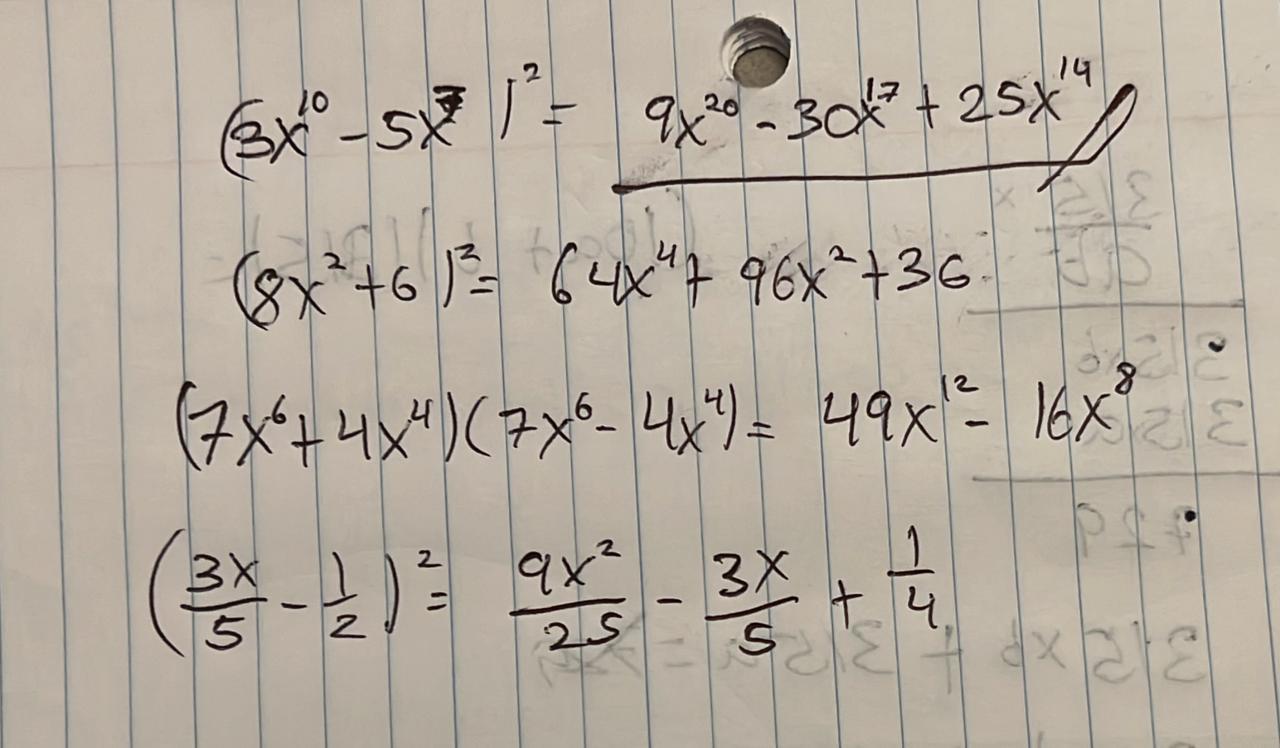 (3x¹⁰ - 5x⁷)² = 9x²⁰ - 30x¹⁷ + 25x¹⁴
(8x² + 6)² = 64x⁴ + 96x² + 36
(7x⁶ + 4x⁴)(7x⁶ - 4x⁴) = 49x¹² - 16x⁸
(3x/5 - 1/2)² = 9x²/25 - 3x/5 + 1/4